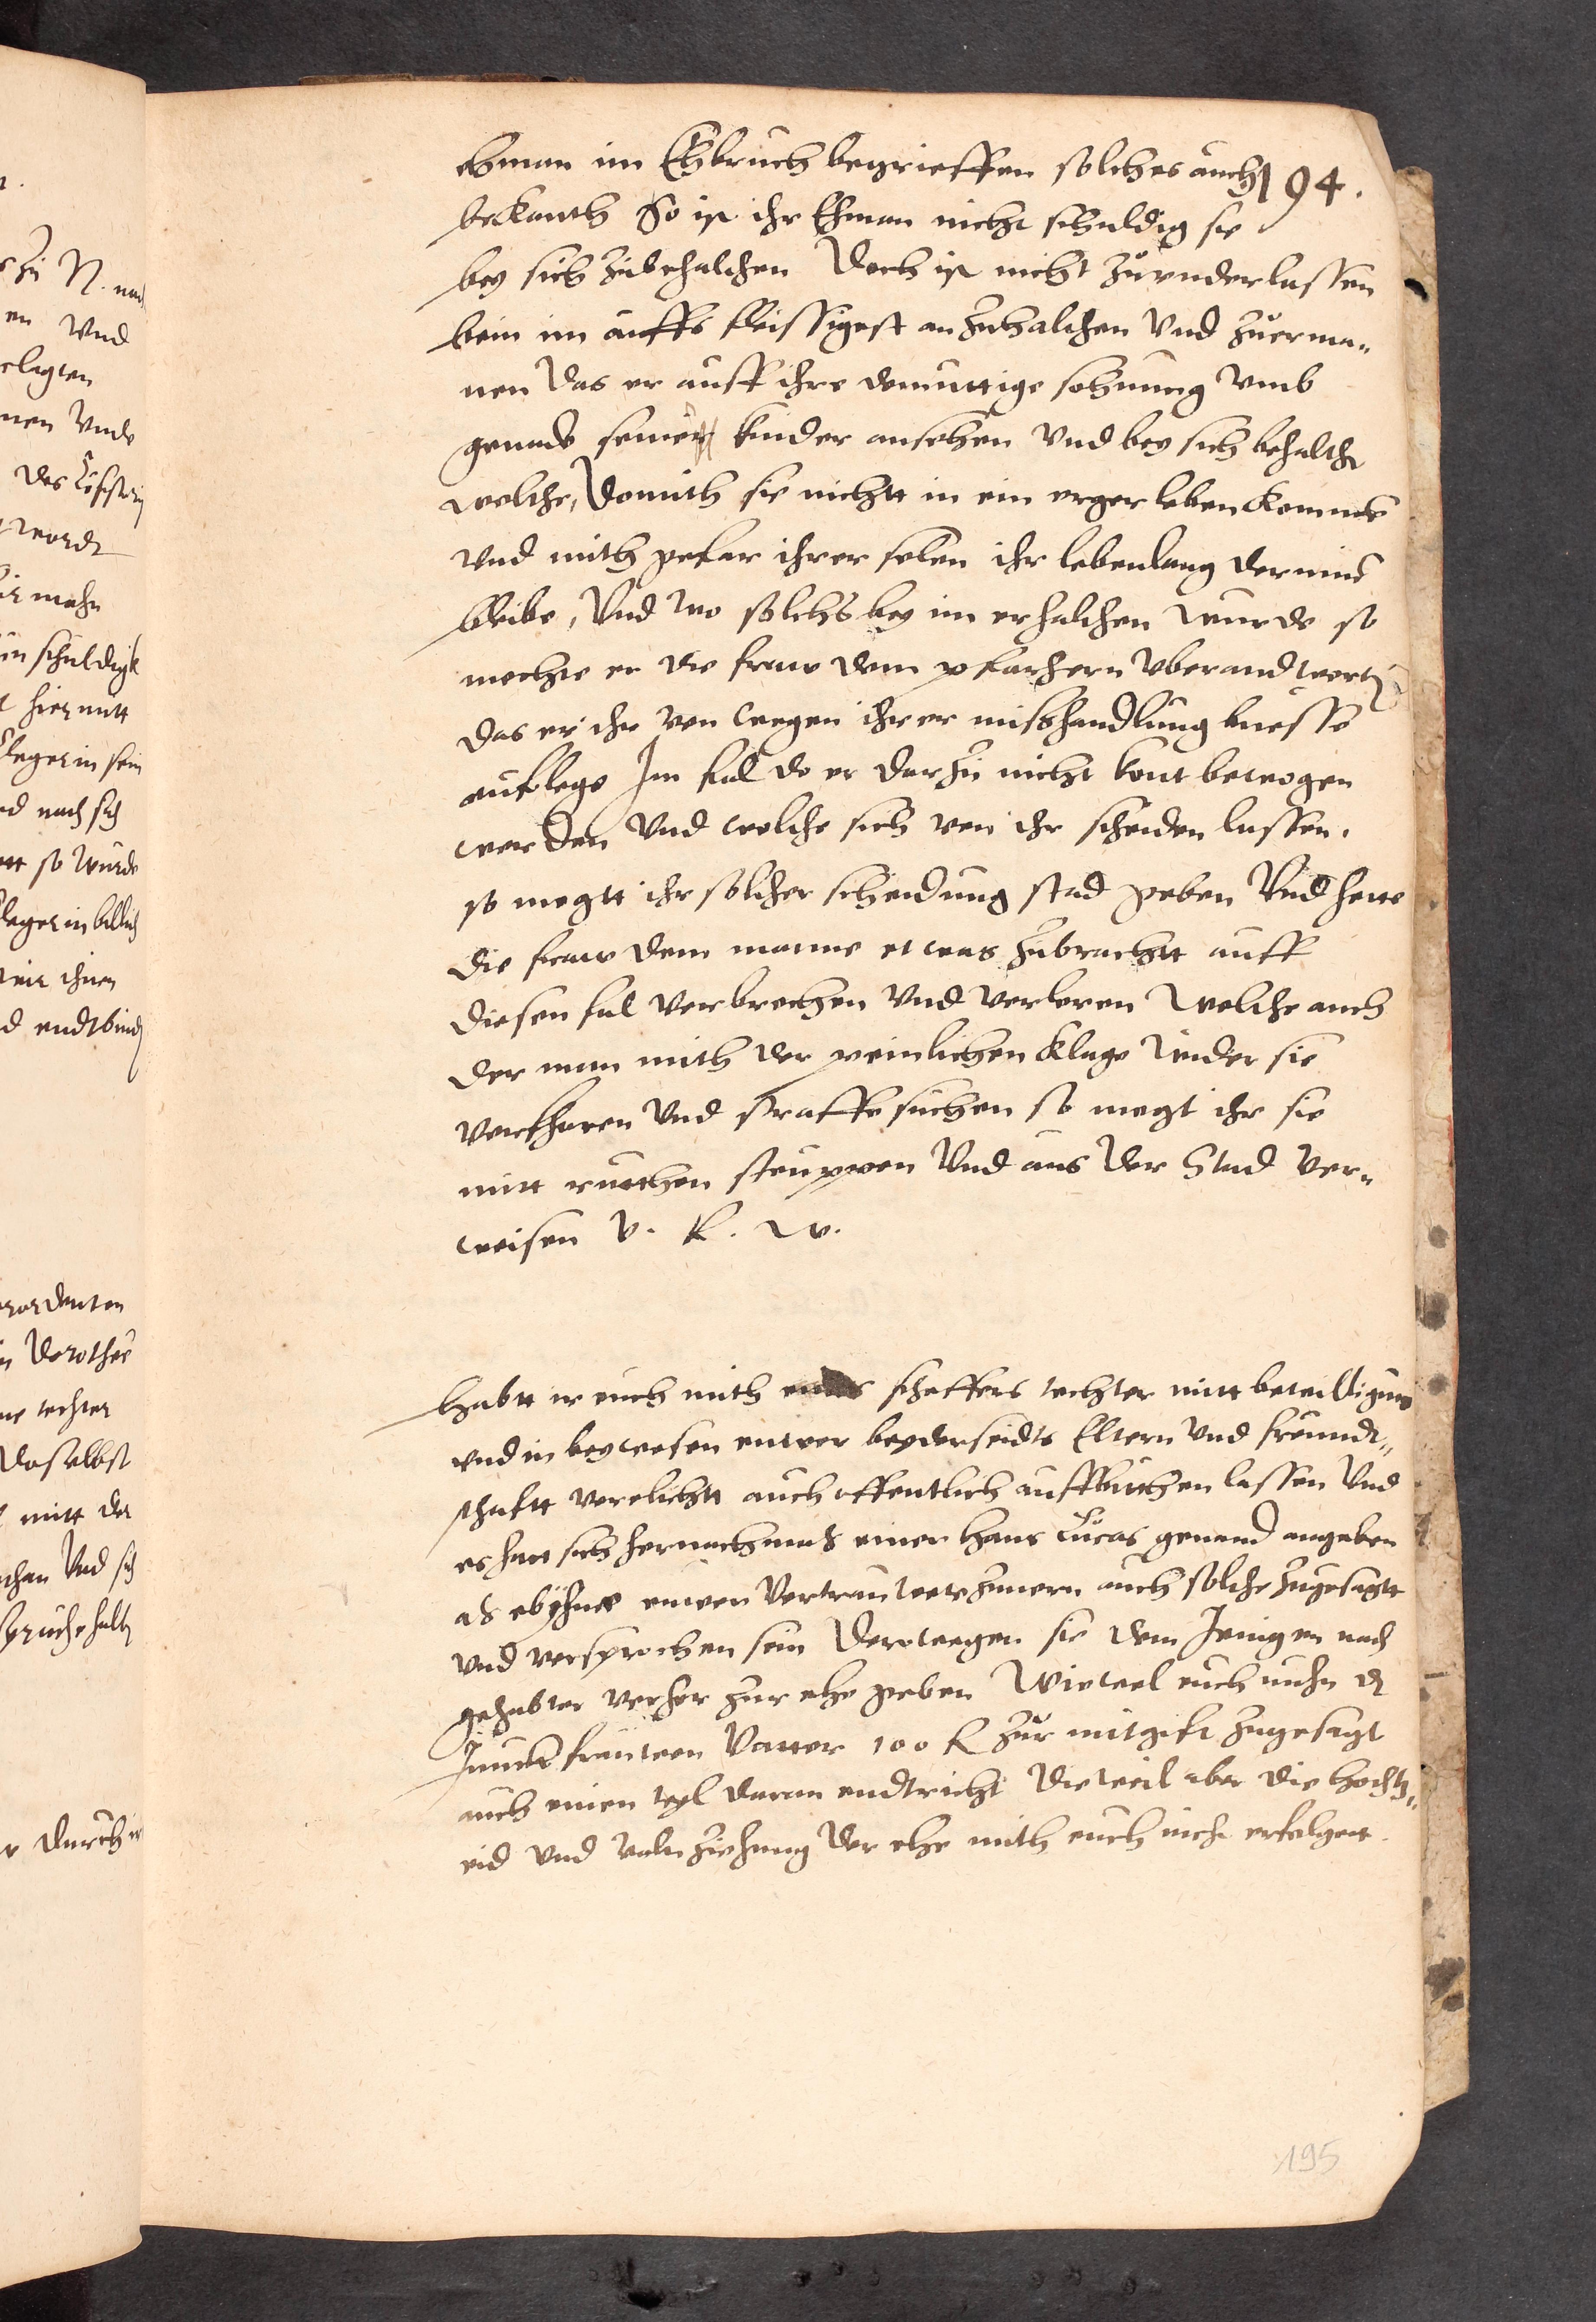 194.
ehman im Ehbruch begrieffen solches auch
bekanth So ist ihr Ehman nicht schuldig sie
bey sich zubehalthen Doch ist nicht zuunderlassen
beim im auffs fleissigest anzuhalthen Vnd zuerma„
nen das er auff ihre demuttige sohnung vmb
genade seiner kinder ansehen Vnd bey sich behalthe
welche, Domith sie nichtt in ein erger leben komme
Vnd mith gefar ihrer selen ihr lebenlang dorinne
bleibe, Vnd wo solchs bey im erhalthen wurde so
mechte er die fraw dem pfarhern vberandworthen
das er ihr von wegen ihrer misshandlung buesse
auflege Im fal do er darzu nicht kont bewogen
werden Vnd welche sich von ihr scheiden lassen.
so megtt ihr solcher scheidung stad geben Vnd hette
die fraw dem manne etwas zubrachtt auff
diesen fal verbrochen Vnd verloren Welche auch
der man mith der peinlichen klage wider sie
verfharen Vnd straffe suchen so megt ihr sie
mitt rutthen steuppen Vnd aus der Stad ver„
weisen V. R. W.
Habtt ir euch mith schaffers techter mitt bewilligung
vnd in beywesen ewer beyderseidts Eltern Vnd freundt„
schafft verelichtt auch offentlich auffbitthen lassen Vnd
es hatt sich hernachmals einer Hans Lucas genand angeben
als ehr ewer Vertrauten zuuorn auch solche zugesagtt
Vnd versprochen sein Derwegen sie dem Jenigen nach
gehabter verher zur ehe geben Wiewol euch nuhn der
Junckfrauwen Vatter 100 fl zur mitgift zugesagt
auch einen teyl daran endtricht Dieweil aber die Hochtz„
eid Vnd volnziehung der ehe mith euch nicht erfolgett
195